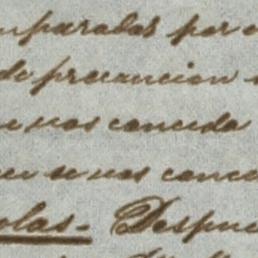 mparadas por
de precaucion
e nos conceda
se nos conce
olas- Despue